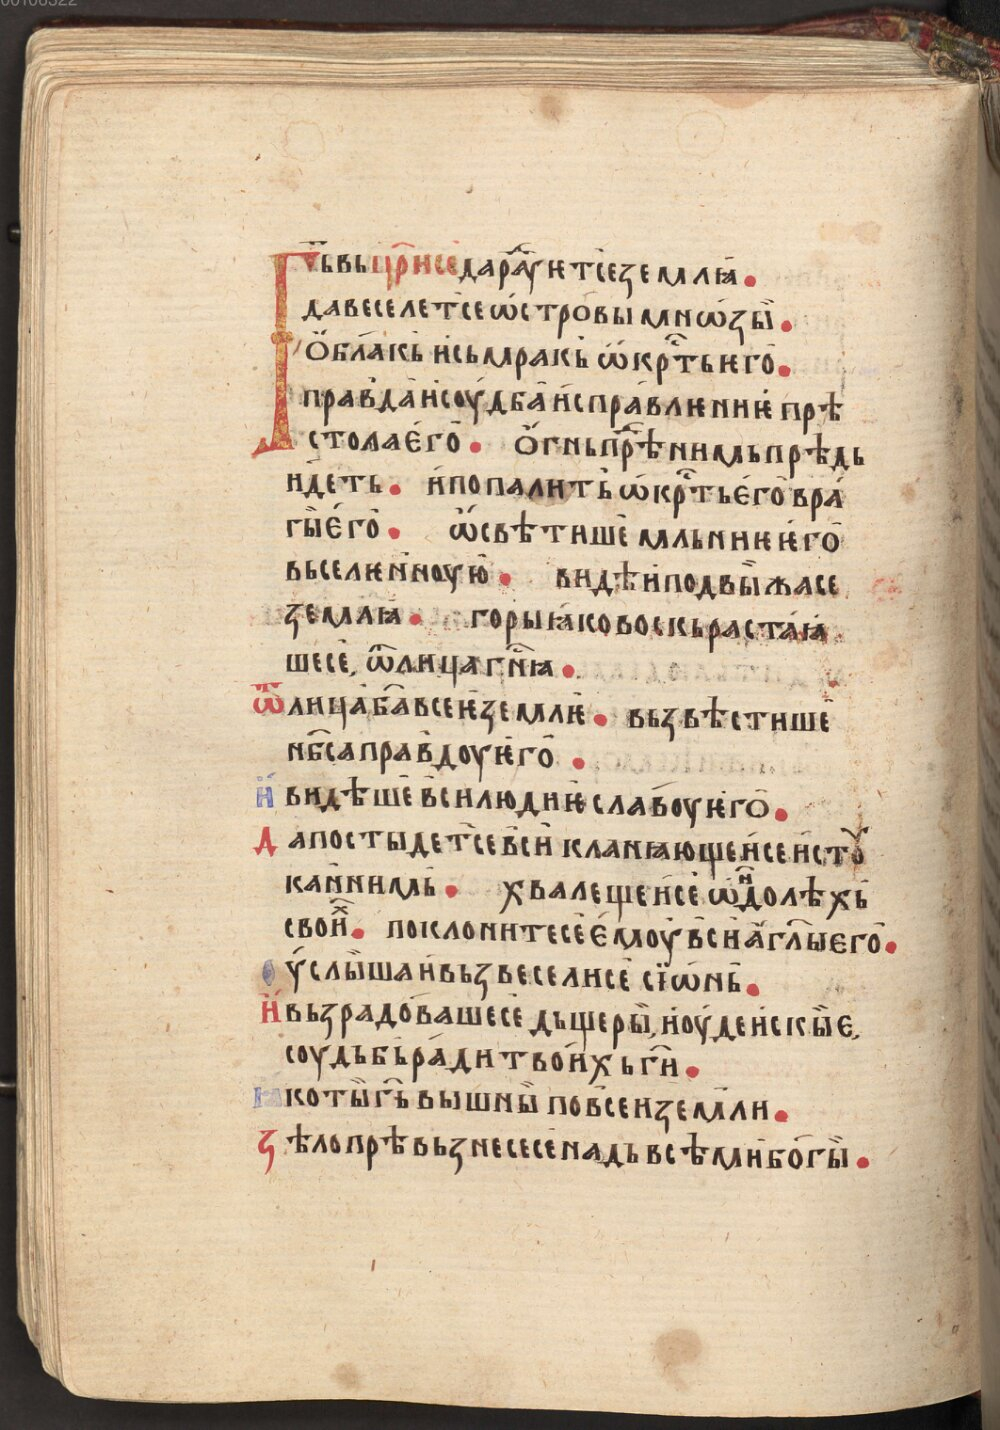 00108322
Гь вьцр҃исе да рауⷣѥтсе землꙗ.
да веселет се ѡстровы мнѡзы.
Ѻблакь и сьмракь ѡкрⷭть ѥго.
правда и соудба исправлѥниѥ прѣ
стола его. Ѻгнь прⷣѣ нимь прѣдь
идеть. и попалить ѡкрⷭть его вра
гы его. Ѡсветише мльниѥ ѥго
вьселѥнноую. видѣ и подвыжа се
землꙗ. горы ꙗко воскь растаꙗ
ше се, ѿ лица гн҃ꙗ.
Ѿ лица ба҃ всеѥ землѥ. вьзвѣстише
нб҃са правдоу ѥго.
И видѣше вси людиѥ славоу ѥго.
Да постыдет се вси кланꙗющеи се истоу
каннимь. хвалещеи се ѡ идолѣхь
своиⷯ. поклоните се емоу вси агг҃лы его.
Оуслыша и вьзвесели се сїѡнь.
И вьзрадоваше се дьщеры, иоудеискые,
соудьбь ради твоихь ги҃.
Ꙗко ты гь҃ вышны по всеи земли.
Зѣло прѣвьзнесе се надь всѣми богы.